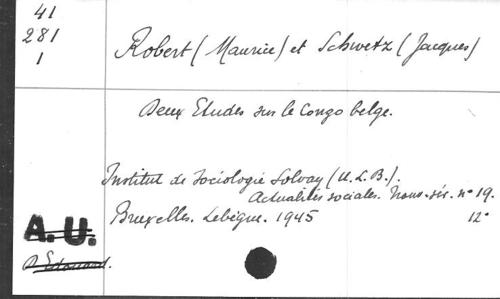 41
281
1
Robert (Maurice) et Schwetz (Jacques)
Deux Etudes sur le Congo belge.
Institut de Sociologie Solvay (U.L.B.).
Actualités sociales. Nouv. sér. n° 19.
Bruxelles. Lebègue. 1945 12°
A.U.